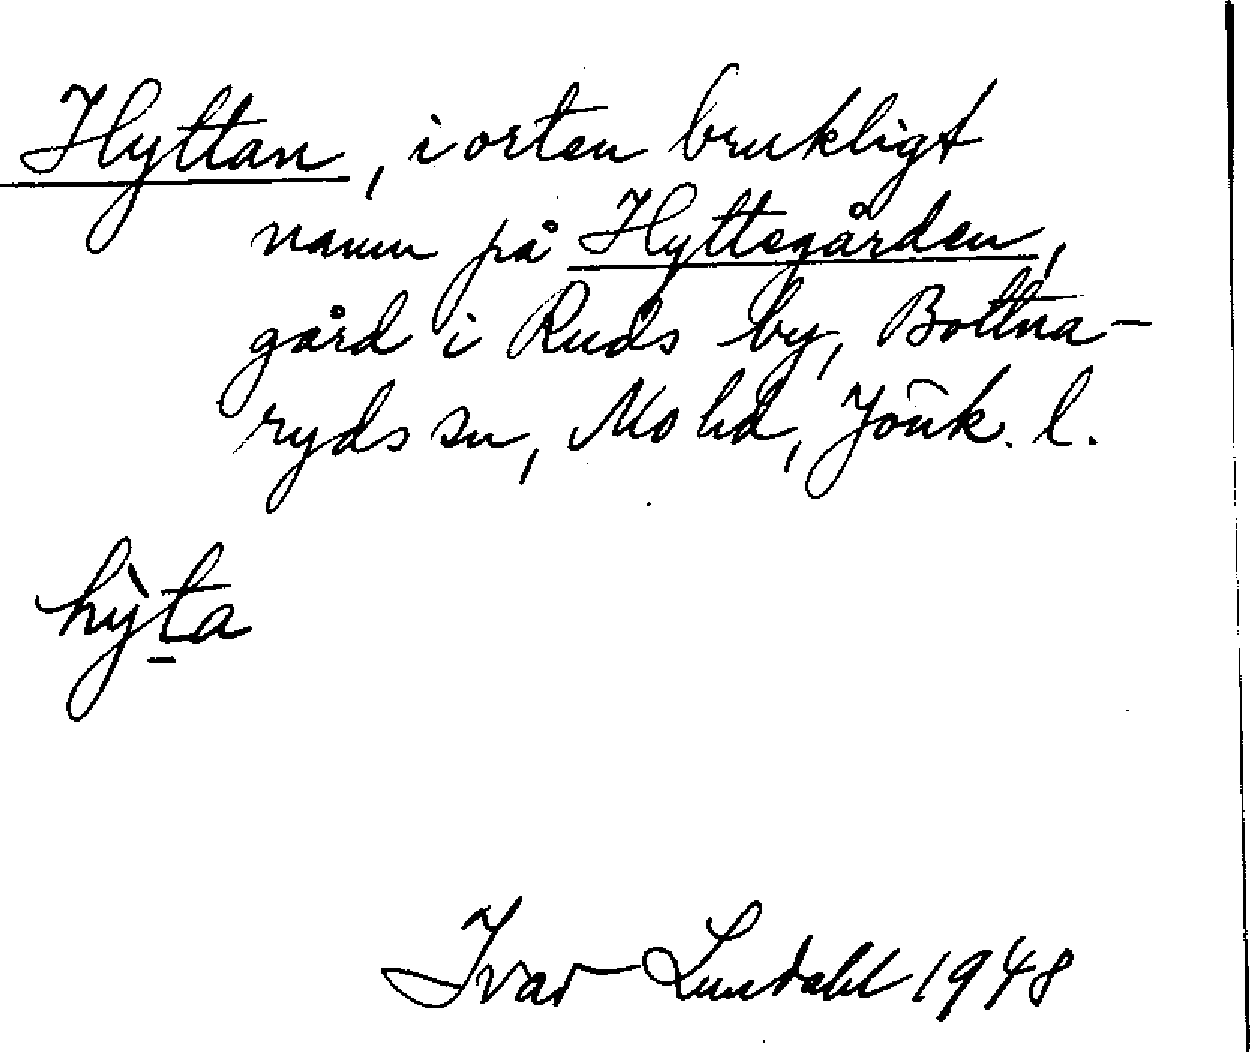 Hyttan, i orten brukligt
namn på Hyttegården,
gård i Ruds by, Bottna-
ryds sn, Mo hd, Jönk. l.
hỳta
Ivar Lundahl 1948